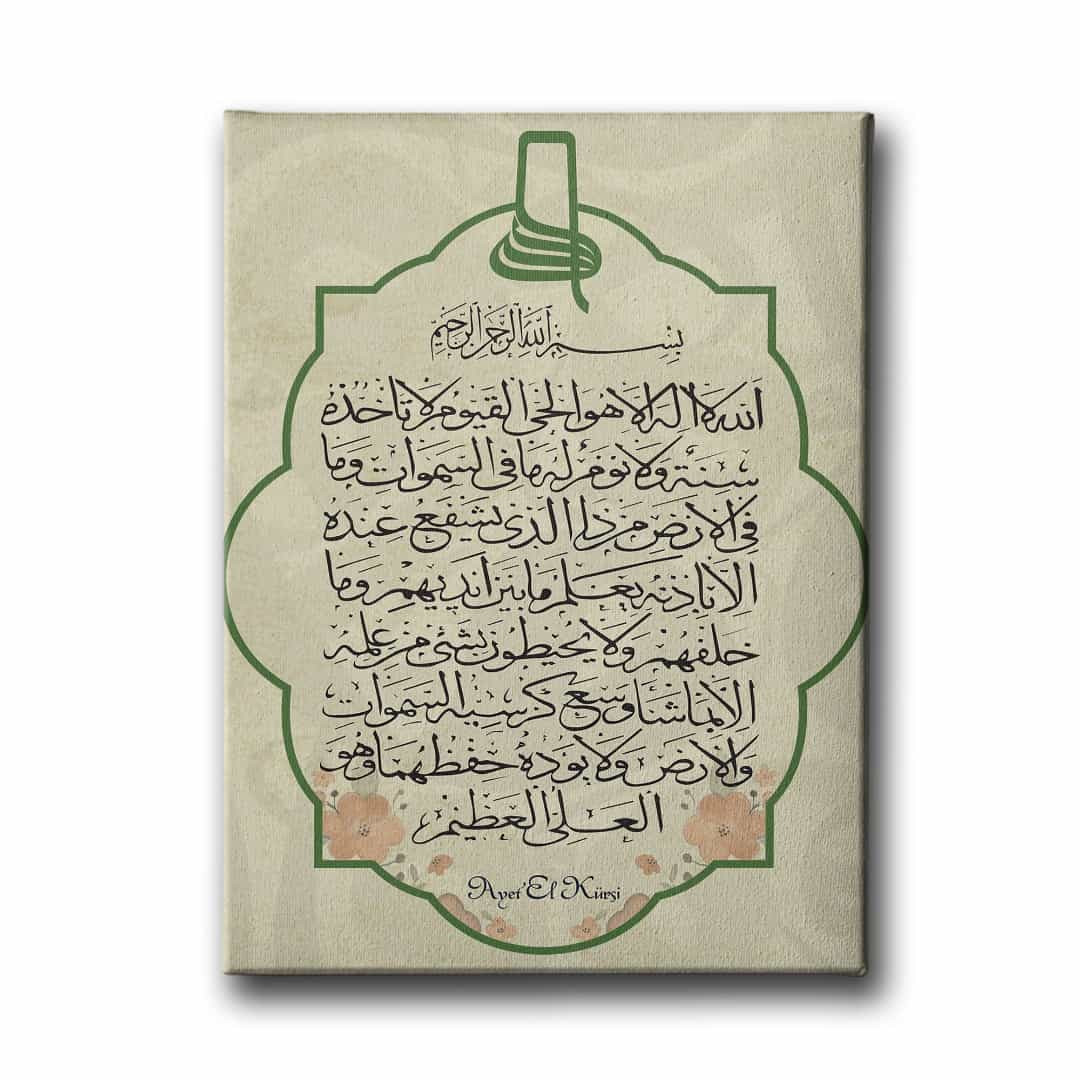 بسم الله الرحمن الرحيم
الله لا اله الا هو الحي القيوم لا تأخذه
سنة ولا نوم له ما في السموات وما
في الارض من ذا الذي يشفع عنده
الا باذنه يعلم ما بين ايديهم وما
خلفهم ولا يحيطون بشئ من علمه
الا بما شاء وسع كرسيه السموات
والارض ولا يؤده حفظهما وهو
العلي العظيم
Ayet'El Kürsi